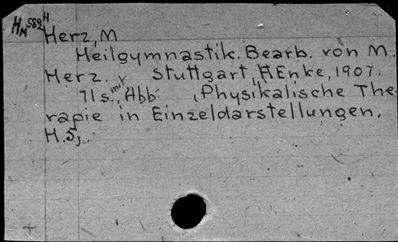 HM 589 H
Herz, M
Heilgymnastik. Bearb. von M.
Herz. Stuttgart, HEnke, 1907.
71 s. mit Abb. (Physikalische The
rapie in Einzeldarstellungen,
H.5,